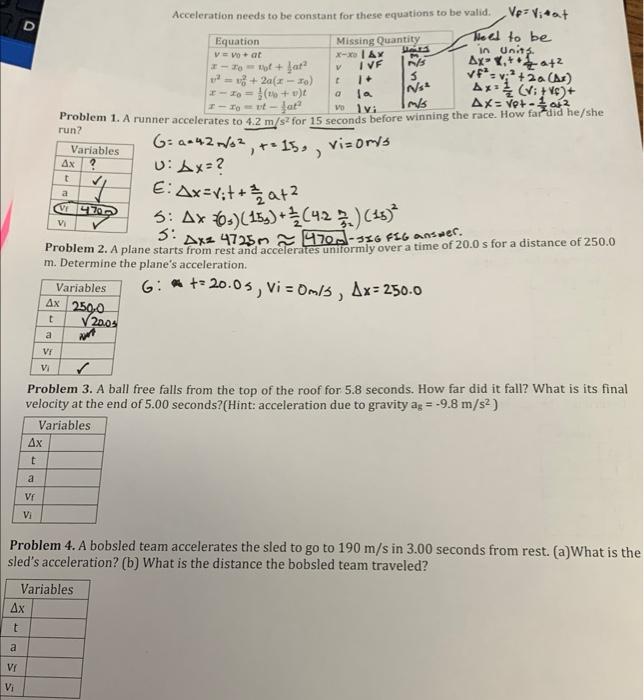 D
Acceleration needs to be constant for these equations to be valid. Vf = Vi + at
Need to be in Units
Equation Missing Quantity Units
v = v₀ + at x-x₀ | Δx m
x − x₀ = v₀t + ½at² v | VF m/s
v² = v₀² + 2a(x − x₀) t | t s
x − x₀ = ½(v₀ + v)t a | a m/s²
x − x₀ = vt − ½at² v₀ | Vi m/s
Δx = Vit + ½at²
Vf² = Vi² + 2a(Δx)
Δx = ½(Vi + Vf)t
Δx = Vft - ½at²
Problem 1. A runner accelerates to 4.2 m/s² for 15 seconds before winning the race. How far did he/she
run?
Variables
Δx ?
t ✓
a ✓
Vf 470m
Vi ✓
G: a = 4.2 m/s², t = 15s, Vi = 0m/s
U: Δx = ?
E: Δx = Vit + ½at²
S: Δx = (0s)(15s) + ½(4.2 m/s²)(15)²
S: Δx = 472.5m ≈ 470m - SIG FIG answer.
Problem 2. A plane starts from rest and accelerates uniformly over a time of 20.0 s for a distance of 250.0
m. Determine the plane's acceleration.
Variables
Δx 250.0
t √20.0s
a
Vf
Vi ✓
G: t = 20.0s, Vi = 0m/s, Δx = 250.0
Problem 3. A ball free falls from the top of the roof for 5.8 seconds. How far did it fall? What is its final
velocity at the end of 5.00 seconds?(Hint: acceleration due to gravity ag = -9.8 m/s² )
Variables
Δx
t
a
Vf
Vi
Problem 4. A bobsled team accelerates the sled to go to 190 m/s in 3.00 seconds from rest. (a)What is the
sled's acceleration? (b) What is the distance the bobsled team traveled?
Variables
Δx
t
a
Vf
Vi